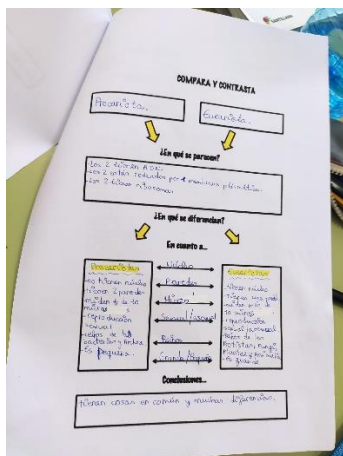 COMPARA Y CONTRASTA
Procariota. Eucariota.
¿En qué se parecen?
-Los 2 tienen ADN.
-Los 2 están rodeados por 1 membrana plasmática.
-Los 2 tienen ribosomas
¿En qué se diferencian?
En cuanto a...
Procariotas
-no tienen núcleo
-tienen pared
-miden
micras
-reproducción
asexual
bacterias y
Es pequeña.
Núcleo
Pared
Micras
Sexual/asexual
Reino
Grande/Pequeña
Eucariotas
-tienen núcleo
micras
-reproducción
sexual y asexual
-reinos de los
protistas, fungi,
plantas y animales
-Es grande
Conclusiones...
tienen cosas en común y muchas diferencias.